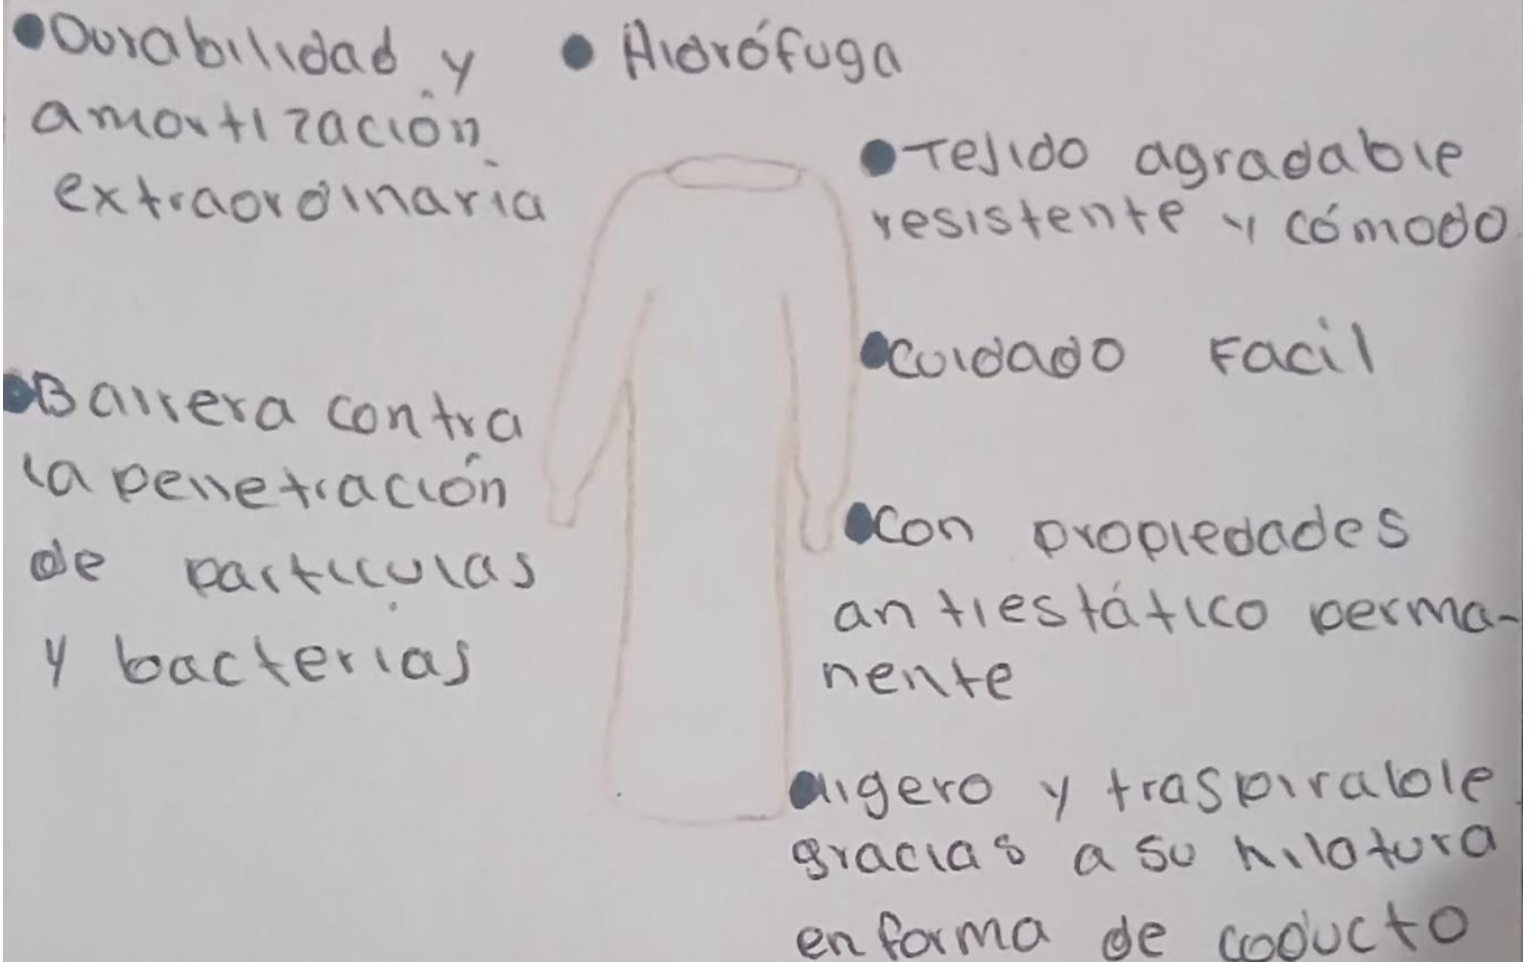 •Durabilidad y
amortización
extraordinaria
• Hidrófuga
•Tejido agradable
resistente y cómodo.
•Cuidado Facil
•Barrera contra
la penetración
de partículas
y bacterias
•Con propiedades
antiestático perma-
nente
•ligero y traspirable
gracias a su hilatura
en forma de coducto